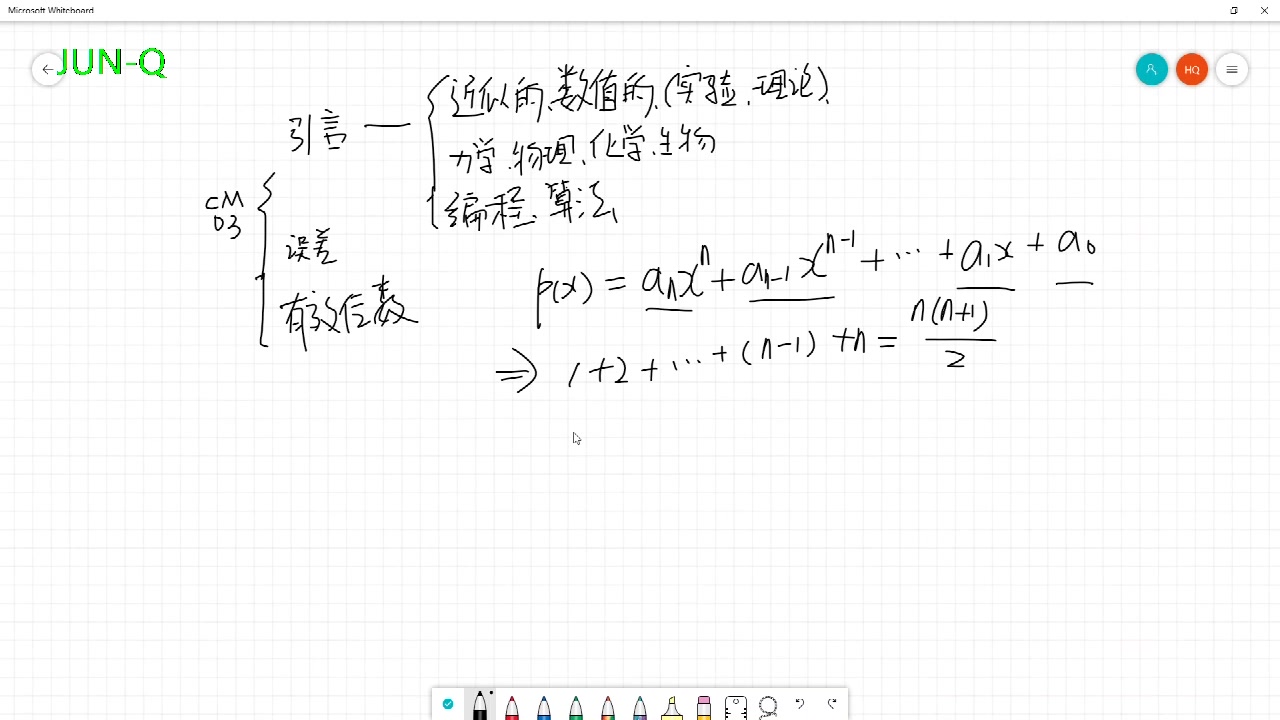 Microsoft Whiteboard
JUN-Q
HQ
近似的、数值的、(实验、理论)、
引言 —
力学、物理、化学、生物
编程、算法、
CM
03
误差
有效位数
p(x) = aₙxⁿ + aₙ₋₁xⁿ⁻¹ + ⋯ + a₁x + a₀
⇒ 1+2+⋯+(n-1)+n = n(n+1)/2